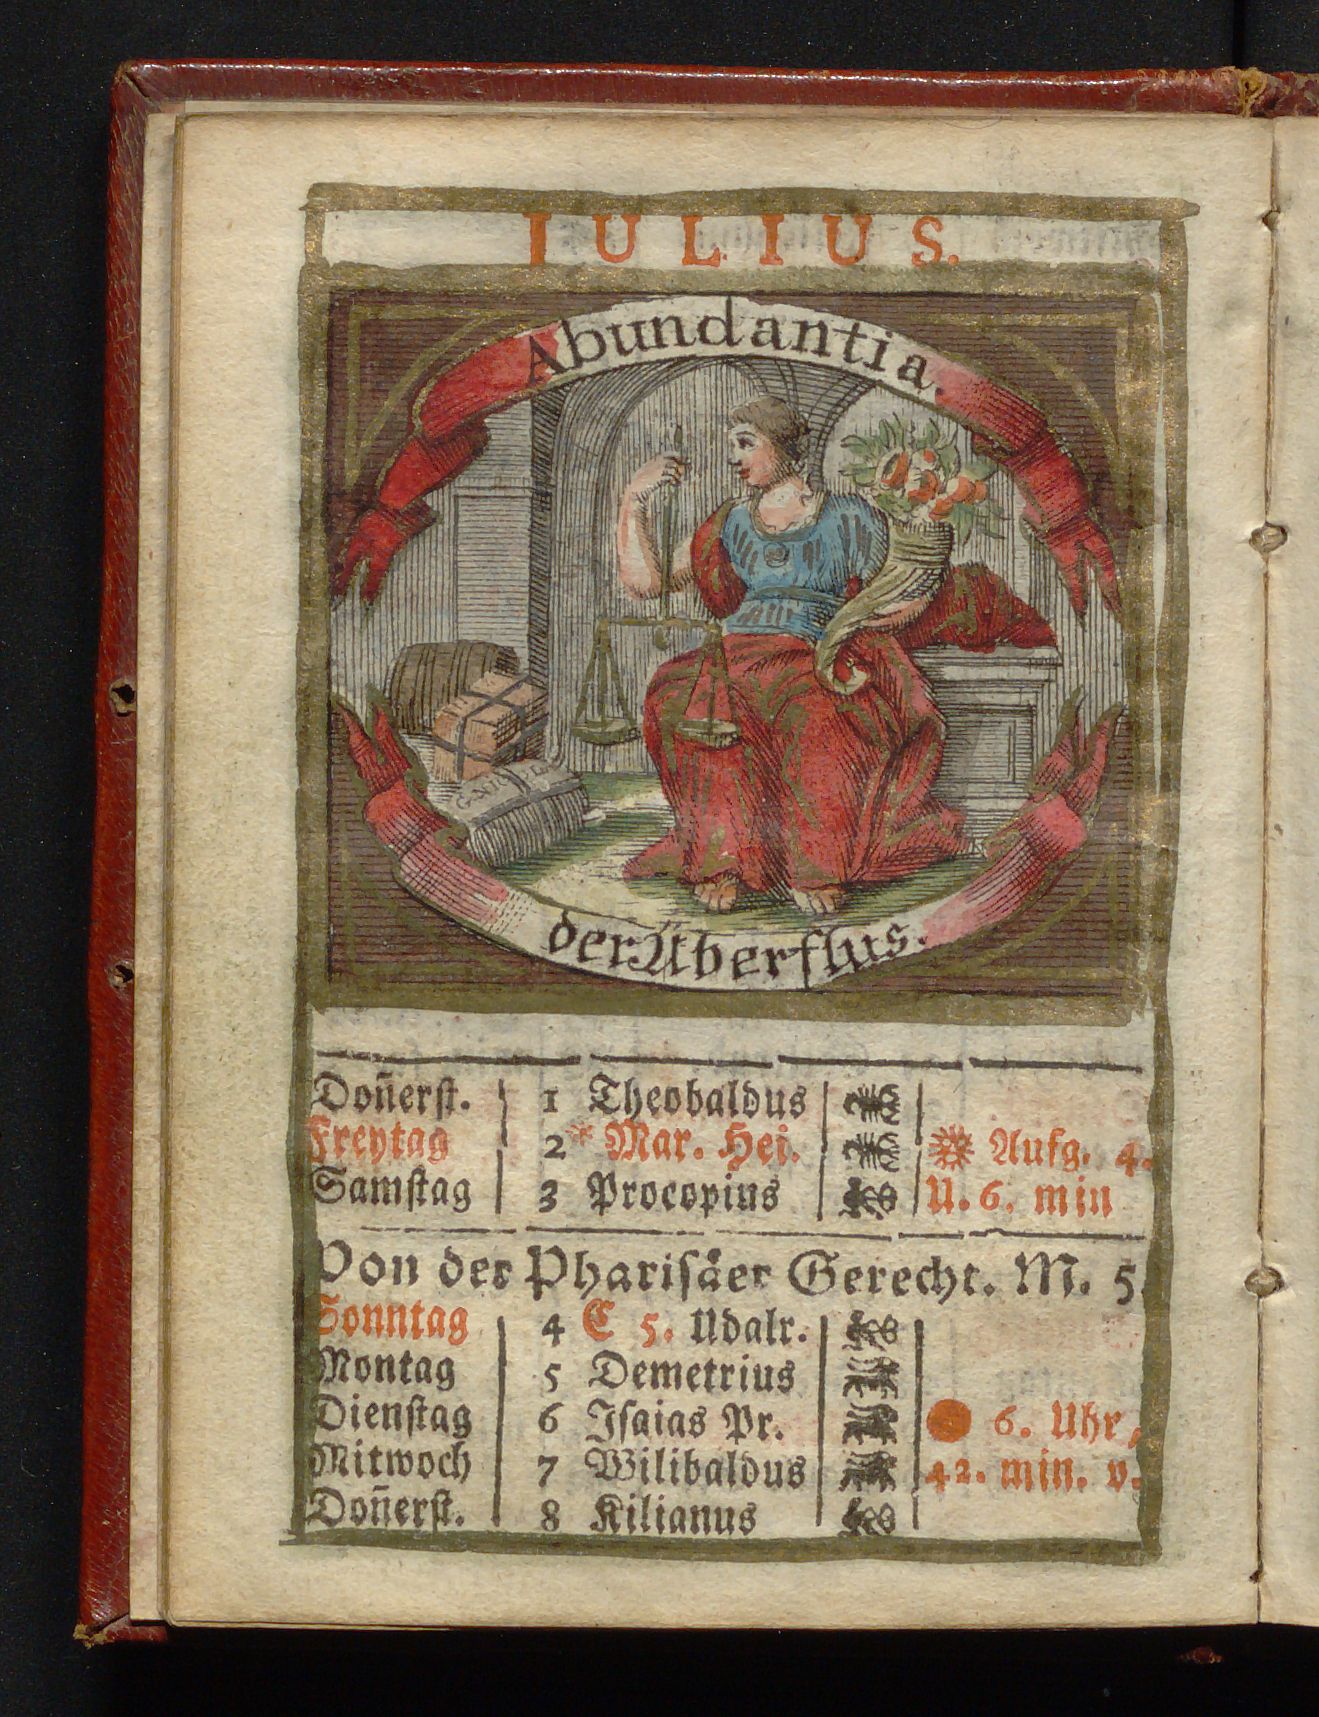 IULIUS.
Abundantia.
der Uberflus.
Don̄erst. 1 Theobaldus
Freytag 2 * Mar. Hei. Aufg. 4.
Samstag 3 Procopius U. 6. min
Von der Pharisäer Gerecht. M. 5.
Sonntag 4 E 5. Udalr.
Montag 5 Demetrius
Dienstag 6 Isaias Pr. 6. Uhr,
Mitwoch 7 Wilibaldus 42. min. v.
Don̄erst. 8 Kilianus